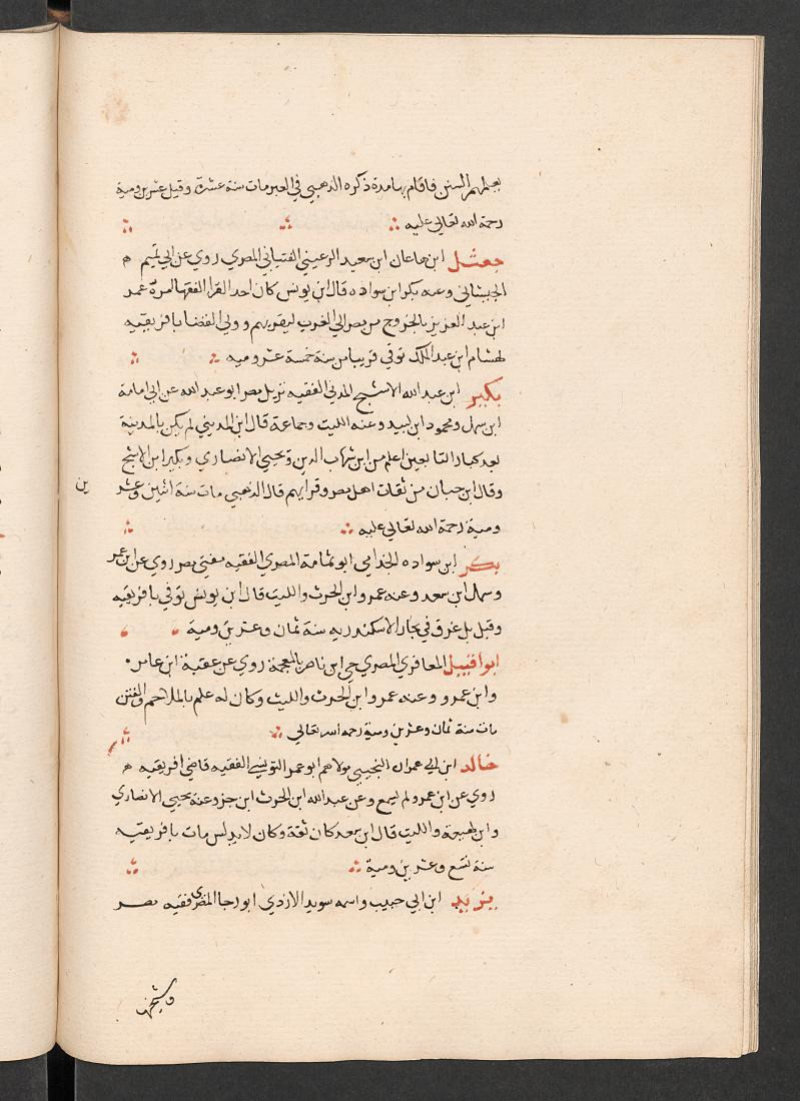 يعلمهم السنن فاقام بها مدة ذكره الذهبي في العبر مات سنة عشرة وقيل عشرين ومية
رحمة الله تعالي عليه
جعثل ابن هاعان ابن سعيد الرعيني القتباني المصري روي عن ابي تميم
الجيشاني وعنه بكر ابن سواده قال ابن يونس كان احد القرا الفقها امره عمر
ابن عبد العزيز بالخروج من مصر الي المغرب ليقريهم وولي القضا بافريقيه
لهشام ابن عبد الملك توفي قريبا من سنة خمسة عشر وميه
بكير ابن عبد الله الاشج المدني الفقيه نزيل مصر ابو عبد الله عن ابي امامة
ابن سهل ومحمود ابن لبيد وعنه الليث وجماعة قال ابن المديني لم يكن بالمدينة
بعد كبار التابعين اعلم من ابن شهاب الدين ويحيي الانصاري وبكير ابن الاشج
وقال ابن حبان من ثقات اهل مصر وقرايهم قال الذهبي مات سنة اثنين وعشر
ين
ومية رحمة الله تعالي عليه
بكر ابن سواده الجذامي ابو ثمامة المصري الفقيه مفتي مصر روي عن ابن عمر
وسهل ابن سعد وعنه عمرو ابن الحرث والليث قال ابن يونس توفي بافريقيه
وقيل بل غرق في بحار الاسكندريه سنة ثمان وعشرين ومية
ابوا قبيل المعافري المصري حي ابن ناصر بالمعجمة روي عن عقبة ابن عامر
وابن عمرو وعنه عمرو ابن الحرث والليث وكان له علم بالملاحم والفتن
مات سنة ثمان وعشرين ومية رحمه الله تعالي
خالد ابن ابي عمران التجيبي مولاهم ابو عمر التونسي الفقيه قاضي افريقيه
روي عن ابن عمرو لم يسمع وعن عبد الله ابن الحرث ابن جزو عنه يحيي الانصاري
وابن لهيعة والليث قال ابن سعد كان ثقة وكان لا يدلس مات بافريقيه
سنة تسع وعشرين ومية
يزيد ابن ابي حبيب واسمه سويد الازدي ابو رجا المصري فقيه مصر
وشيخها